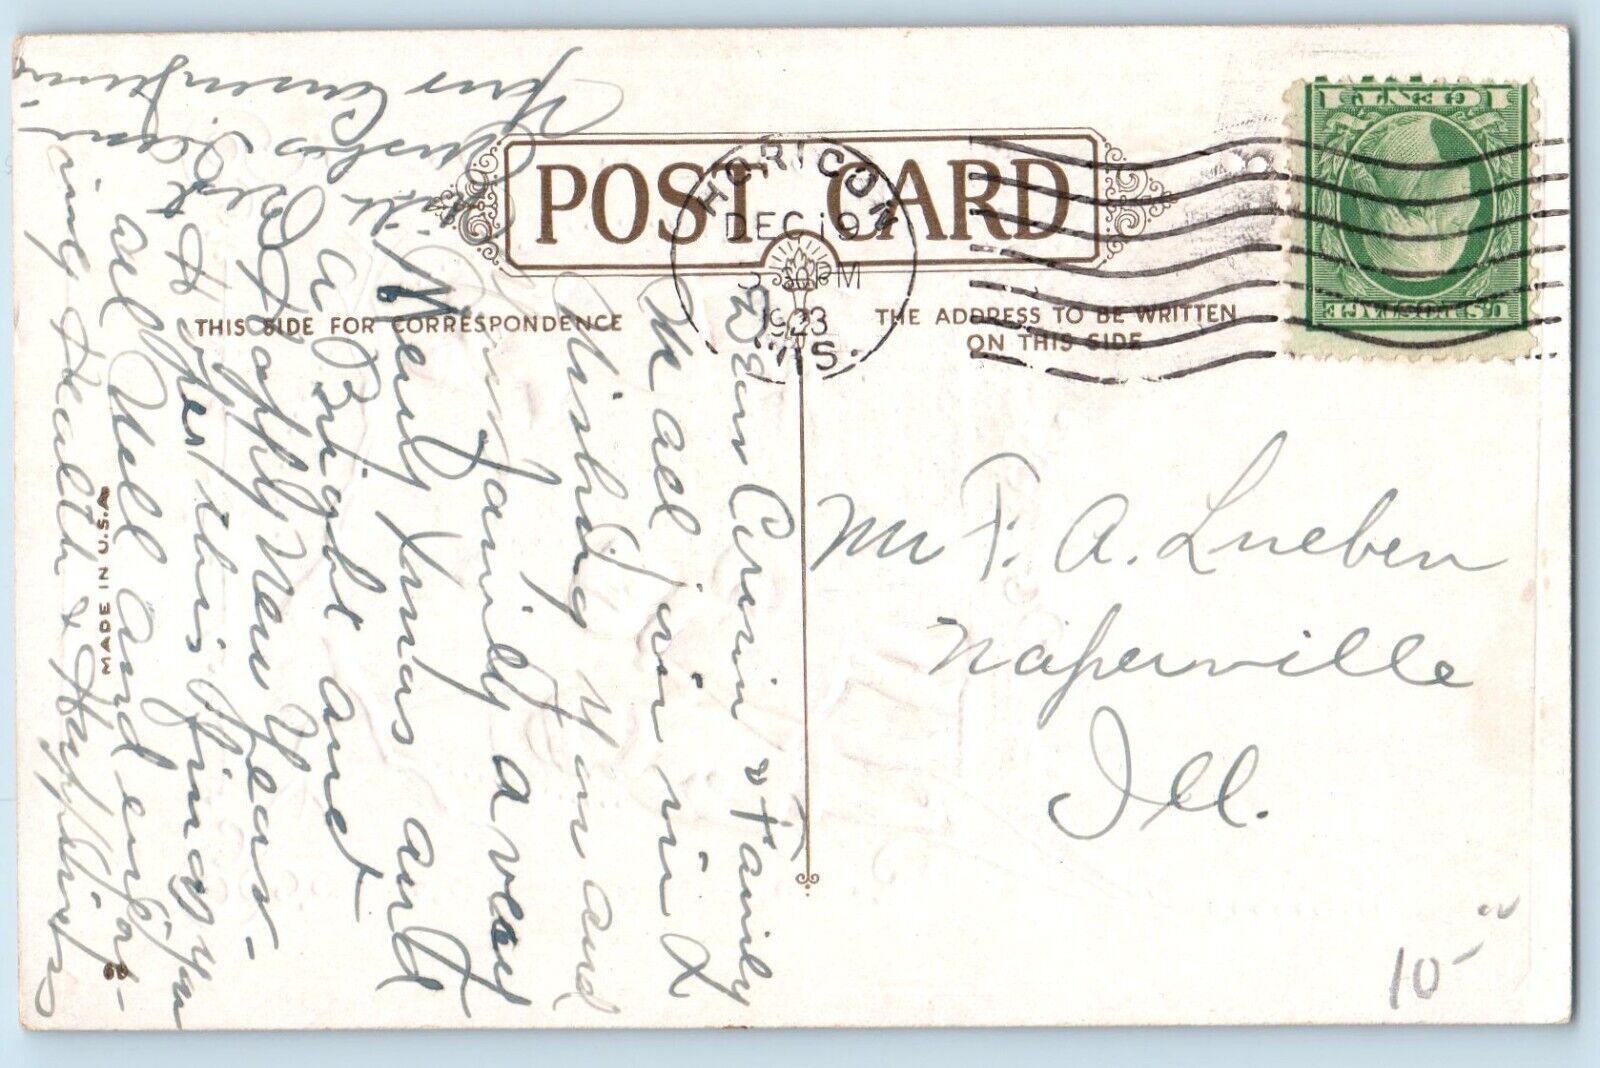 POST CARD
THIS SIDE FOR CORRESPONDENCE
THE ADDRESS TO BE WRITTEN
ON THIS SIDE
HORICON
DEC 19
PM
1923
WIS.
1 CENT 1
U.S. POSTAGE
Mr F. A. Lueben
Naperville
Ill.
10
MADE IN U.S.A.
Dear & Family
We all join in
Wishing You and
Family a very
Merry Xmas and
a Bright and
Happy New Year -
Hopes this finds you
all Well and enjoy-
ing Health & Happiness
With Best
Wishes